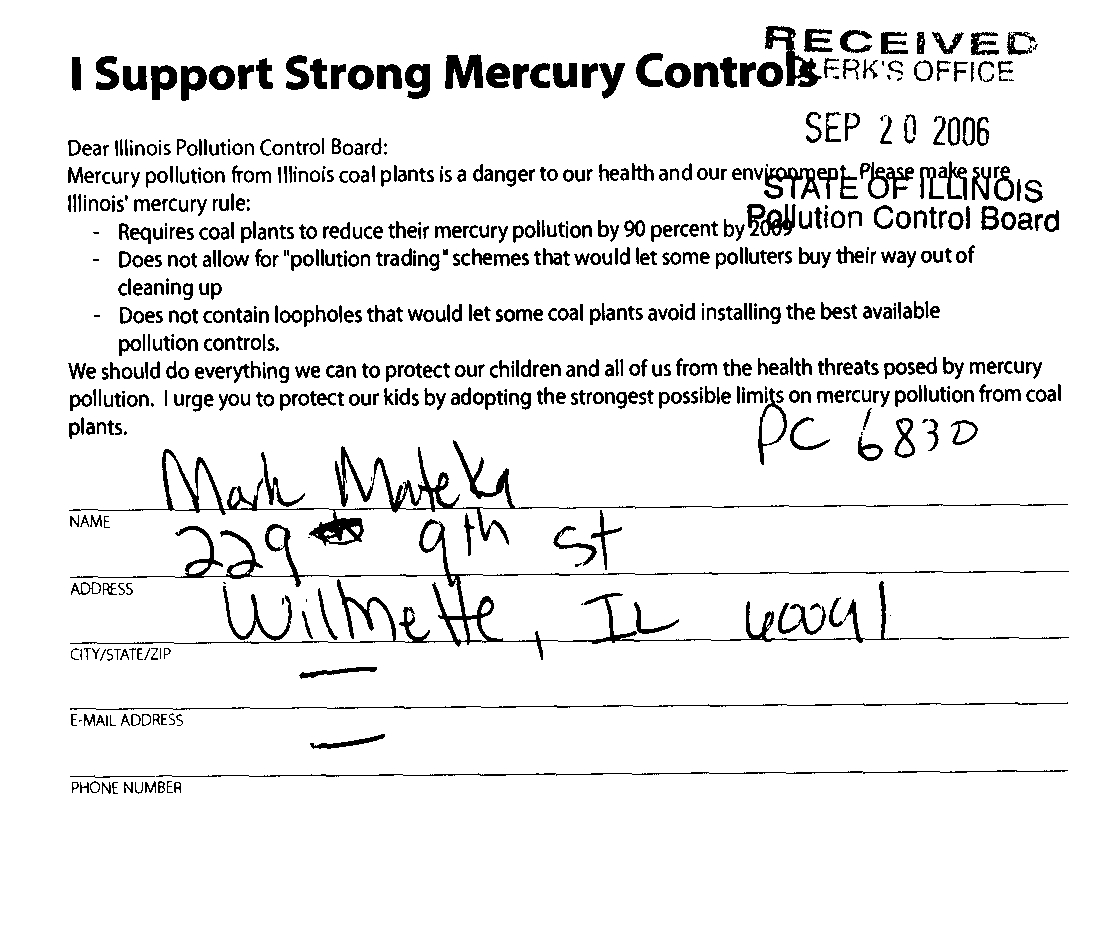 RECEIVED
CLERK'S OFFICE
I Support Strong Mercury Controls
SEP 20 2006
STATE OF ILLINOIS
Pollution Control Board
Dear Illinois Pollution Control Board:
Mercury pollution from Illinois coal plants is a danger to our health and our environment. Please make sure
Illinois' mercury rule:
- Requires coal plants to reduce their mercury pollution by 90 percent by 2009
- Does not allow for "pollution trading" schemes that would let some polluters buy their way out of
cleaning up
- Does not contain loopholes that would let some coal plants avoid installing the best available
pollution controls.
We should do everything we can to protect our children and all of us from the health threats posed by mercury
pollution. I urge you to protect our kids by adopting the strongest possible limits on mercury pollution from coal
plants.
PC 6830
Mark Mateka
NAME
229 9th St
ADDRESS
Wilmette, IL 60091
CITY/STATE/ZIP
—
E-MAIL ADDRESS
—
PHONE NUMBER